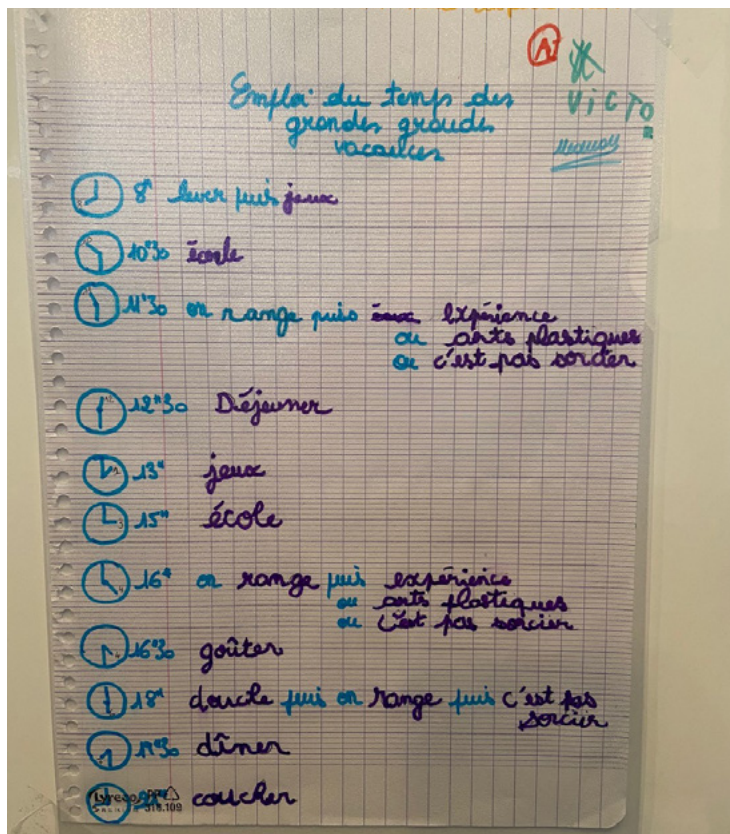 A
VICTO
Emploi du temps des
grandes grandes
vacances
8h lever puis jeux
10h30 école
11h30 on range puis expérience
ou arts plastiques
ou c'est pas sorcier
12h30 Déjeuner
13h jeux
15h école
16h on range puis expérience
ou arts plastiques
ou c'est pas sorcier
16h30 goûter
18h douche puis on range puis c'est pas
sorcier
dîner
Lyreco
318.109
coucher